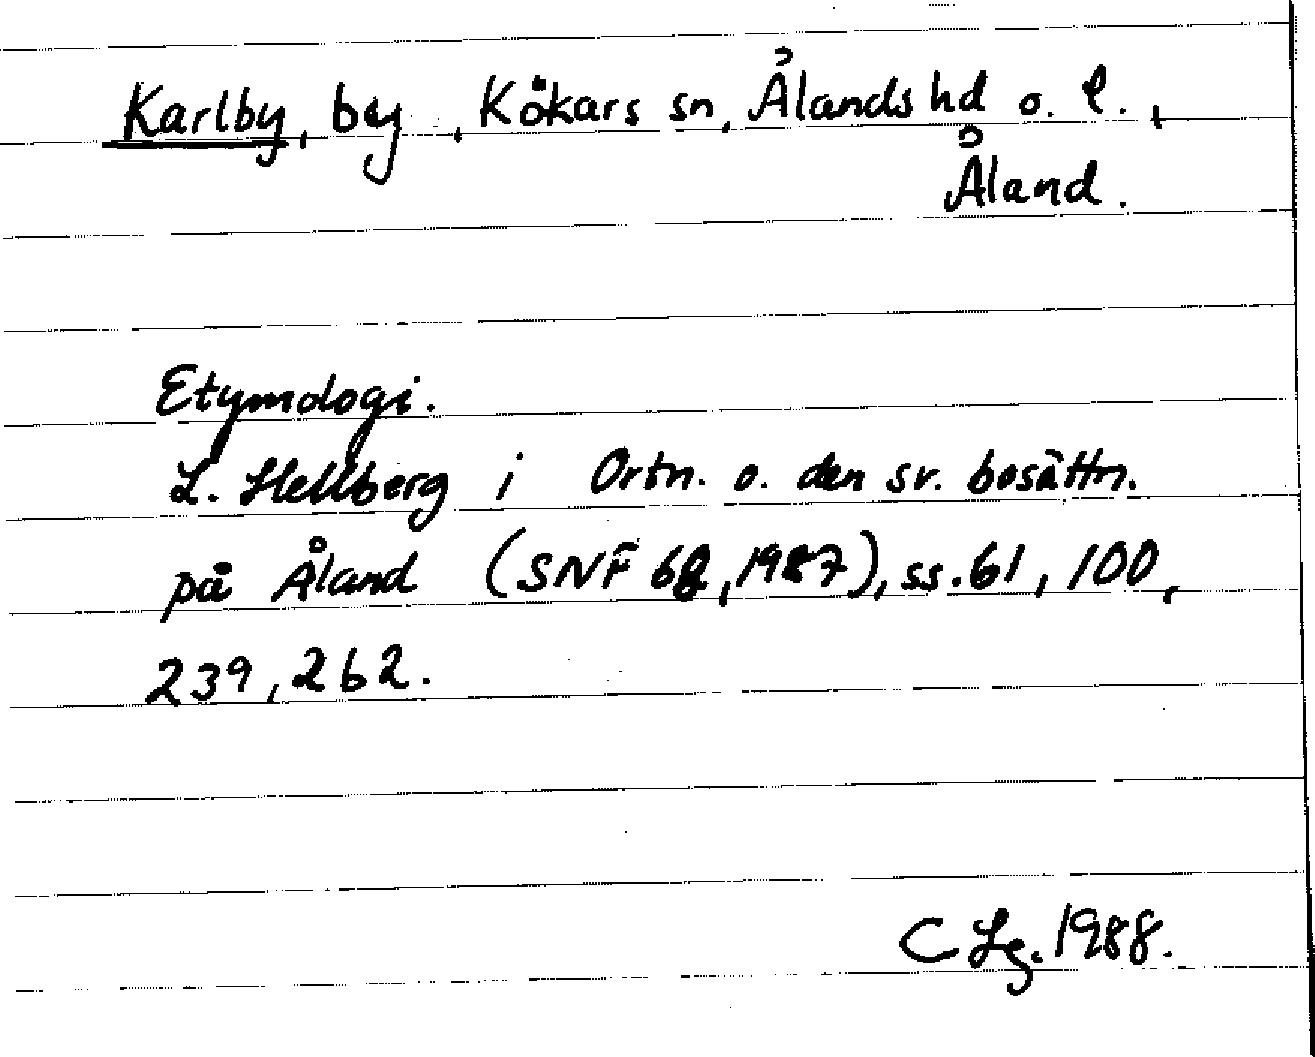 Karlby, by, Kökars sn, Ålands hd o. l.,
Åland.
Etymologi.
L. Hellberg i Ortn. o. den sv. bosättn.
på Åland (SNF 68, 1987), ss. 61, 100,
239, 262.
C Lg. 1988.